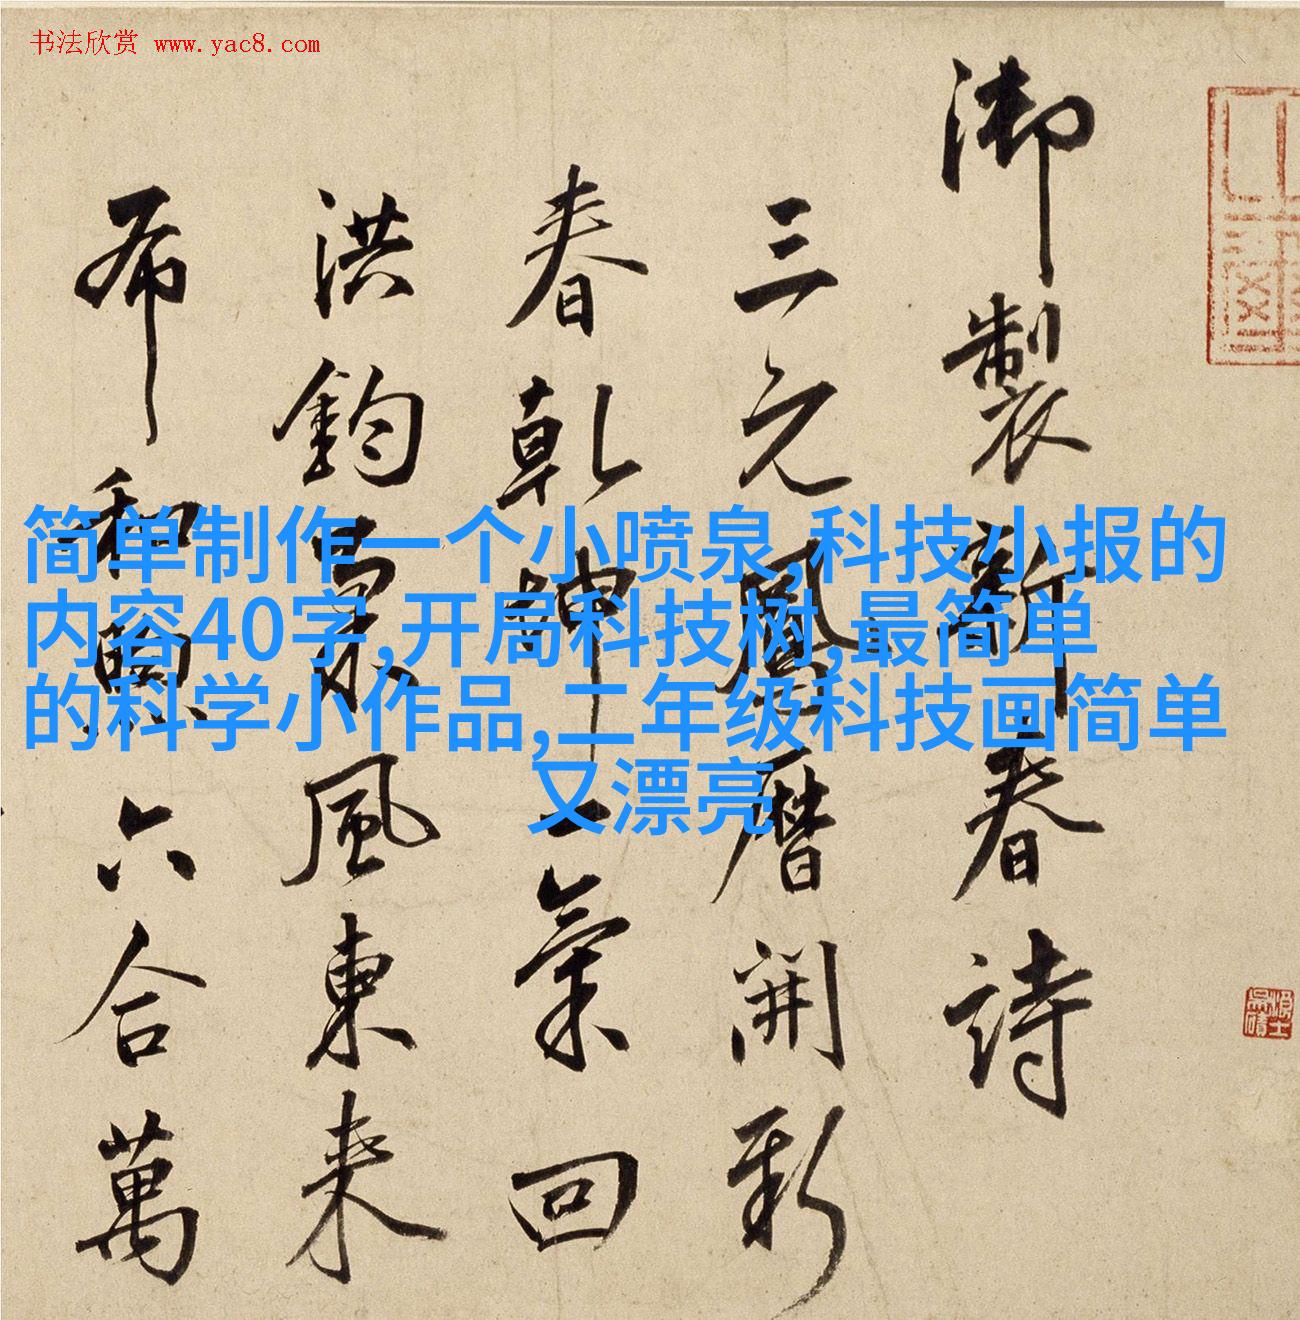 书法欣赏 www.yac8.com
御製新春詩
三元鳳曆開新
春乾坤一氣回
洪鈞景風東来
布和興六合萬
简单制作一个小喷泉,科技小报的
内容40字,开局科技树,最简单
的科学小作品,二年级科技画简单
又漂亮